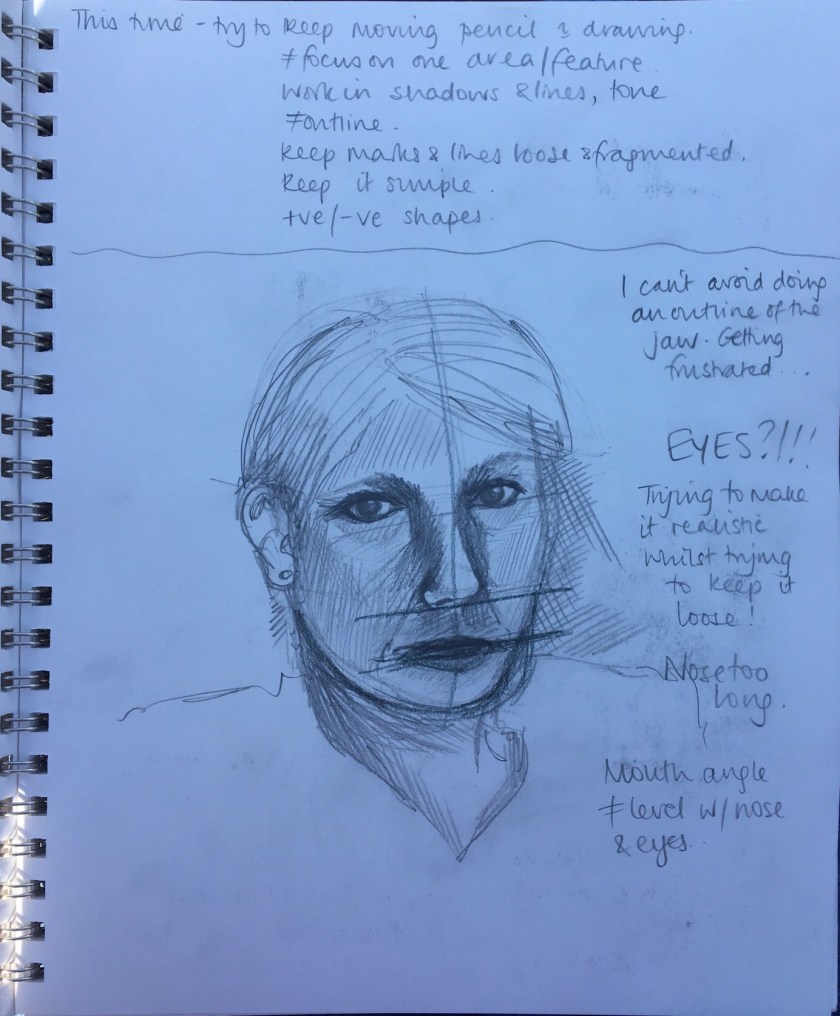 This time - try to keep moving pencil & drawing.
≠ focus on one area/feature
work in shadows & lines, tone
≠ outline.
keep marks & lines loose & fragmented.
Keep it simple.
+ve/-ve shapes.
I can't avoid doing
an outline of the
jaw. Getting
frustrated...
EYES?!!!
Trying to make
it realistic
whilst trying
to keep it
loose!
Nose too
long.
Mouth angle
≠ level w/ nose
& eyes.